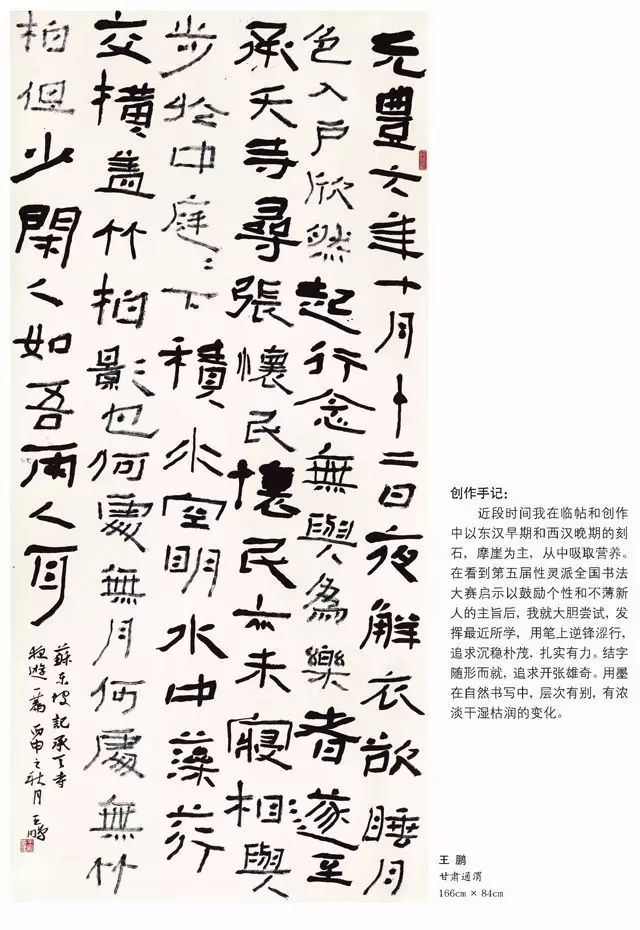 元豐六年十月十二日夜解衣欲睡月
色入戶欣然起行念無與為樂者遂至
承天寺尋張懷民懷民亦未寢相與
步於中庭〻下積水空明水中藻荇
交橫盖竹柏影也何處無月何處無竹
柏但少閑人如吾兩人耳
蘇東坡記承天寺
夜遊一篇丙申之秋月王鵬
创作手记：
近段时间我在临帖和创作
中以东汉早期和西汉晚期的刻
石，摩崖为主，从中吸取营养。
在看到第五届性灵派全国书法
大赛启示以鼓励个性和不薄新
人的主旨后，我就大胆尝试，发
挥最近所学，用笔上逆锋涩行，
追求沉稳朴茂，扎实有力。结字
随形而就，追求开张雄奇。用墨
在自然书写中，层次有别，有浓
淡干湿枯润的变化。
王 鹏
甘肃通渭
166cm × 84cm